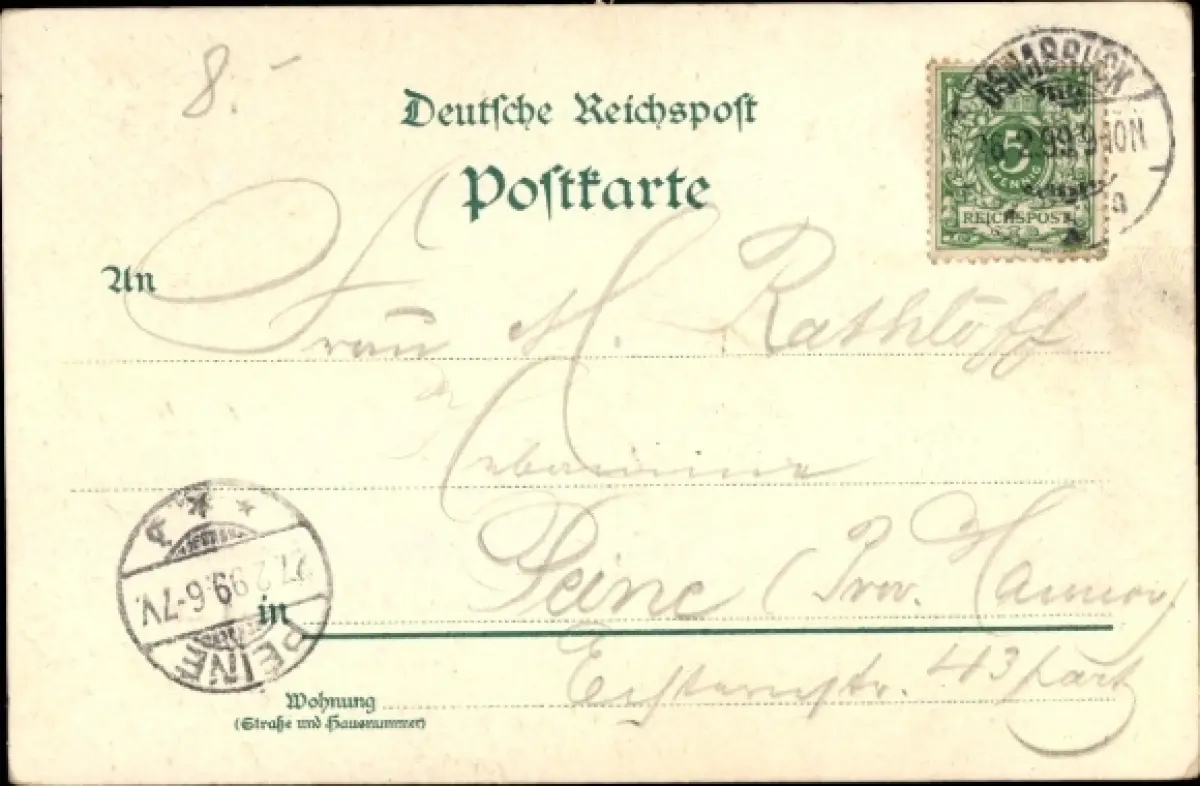 8. –
Deutsche Reichspost
Postkarte
OSNABRÜCK
2.99 9-10N
5
PFENNIG
REICHSPOST
An Frau M. Rathloff
Hebamme
in Peine (Prov. Hannov.)
43 part
Wohnung
(Straße und Hausnummer)
PEINE
27.2.99.6-7V.